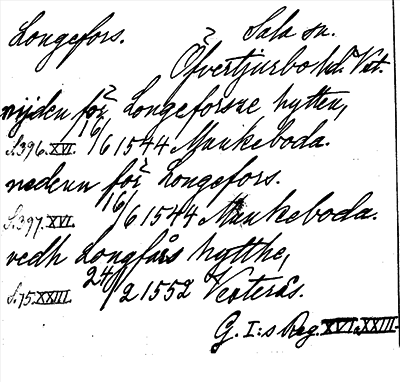 Longefors. Sala sn.
Öfvertjurbo hd. Vst.
nijden för Longeforsne hytten,
S.396.XVI. 16/6 1544 Munkeboda.
nedenn för Longefors.
S.397.XVI. 16/6 1544 Munkeboda.
vedh Longfårs hytthe,
S.75.XXIII. 24/2 1552 Vesterås.
G. I:s Reg. XVI. XXIII.